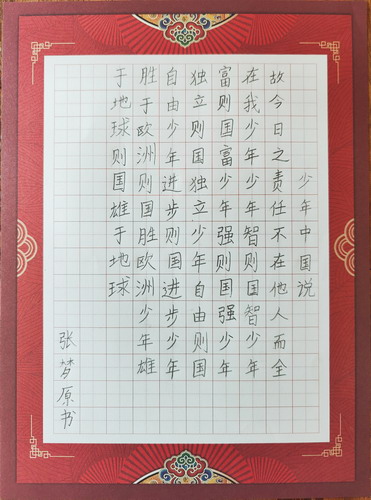 少年中国说
故今日之责任不在他人而全
在我少年少年智则国智少年
富则国富少年强则国强少年
独立则国独立少年自由则国
自由少年进步则国进步少年
胜于欧洲则国胜欧洲少年雄
于地球则国雄于地球
张梦原书